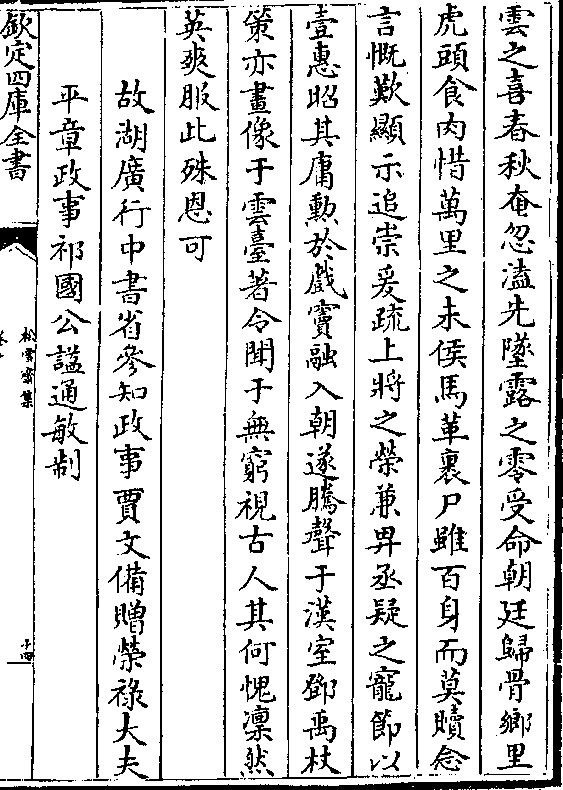 雲之喜春秋奄忽溘先墜露之零受命朝廷歸骨鄉里
虎頭食肉惜萬里之未侯馬革裹尸雖百身而莫贖念
言慨歎顯示追崇爰疏上將之榮兼畀丞疑之寵節以
壹惠昭其庸勲於戲竇融入朝遂騰聲于漢室鄧禹杖
策亦畫像于雲臺著令聞于無窮視古人其何愧凛然
英爽服此殊恩可
故湖廣行中書省參知政事賈文備贈榮祿大夫
平章政事祁國公諡通敏制
欽定四庫全書
松雪齋集
十四